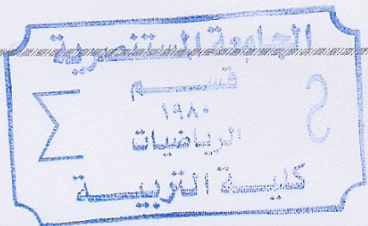 الجامعة المستنصرية
قســـــم
١٩٨٠
الرياضيات
كليـــة التربيـــة